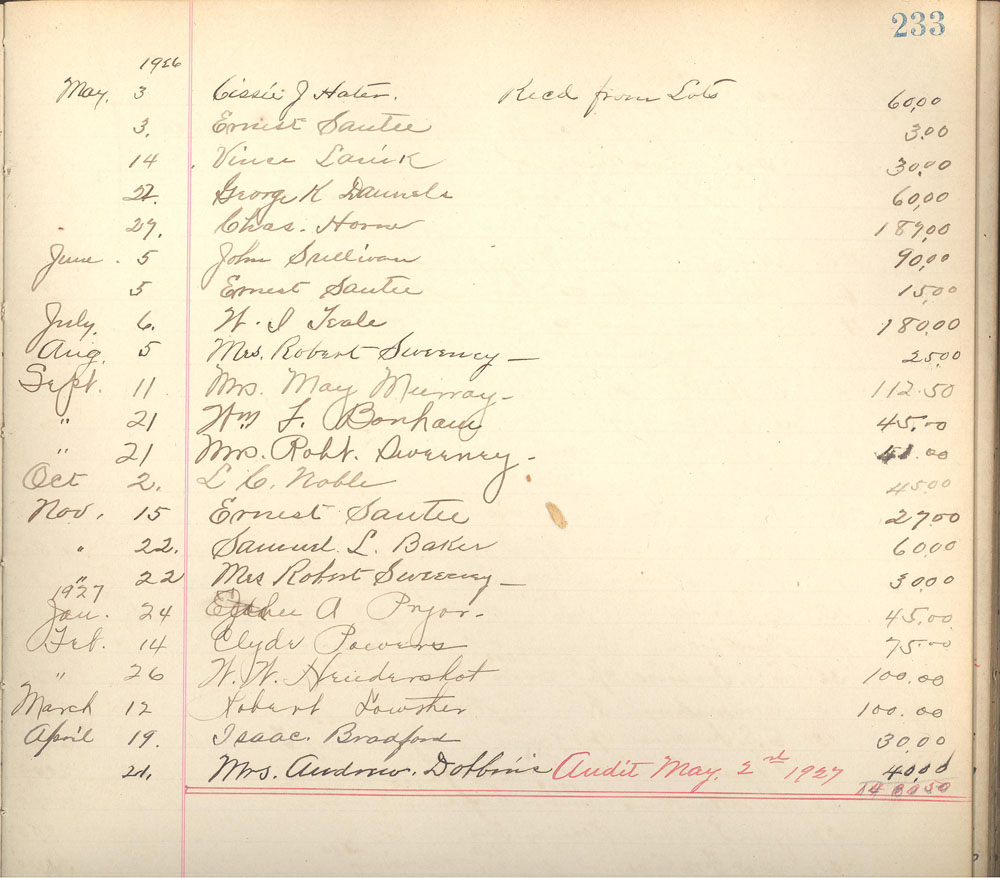 233
1926
May. 3 Cissie J Hater. Recd from Lots 60.00
3. Ernest Santee 3.00
14 Vince 30.00
George K Daniels 60.00
27. Chas. Horne 187.00
June 5 John Sullivan 90.00
5 Ernest Santee 15.00
July. 6. W. S Teale 180.00
Aug. 5 Mrs. Robert Sweeney — 25.00
Sept. 11 Mrs. May Murray - 112.50
" 21 Wm F. Bonham 45.00
" 21 Mrs. Robt. Sweeney - 41.00
Oct 2. L C. Noble 45.00
Nov. 15 Ernest Santee 27.00
" 22. Samuel L. Baker 60.00
" 22 Mrs Robert Sweeney — 30.00
1927
Jan. 24 A Pryor - 45.00
Feb. 14 Clyde Powers 75.00
" 26 W. W. Hendershot 100.00
March 12 Robert Lowther 100.00
April 19. Isaac. Bradford 30.00
Mrs. Andrew. Dobbins Audit May. 2nd 1927 40.00